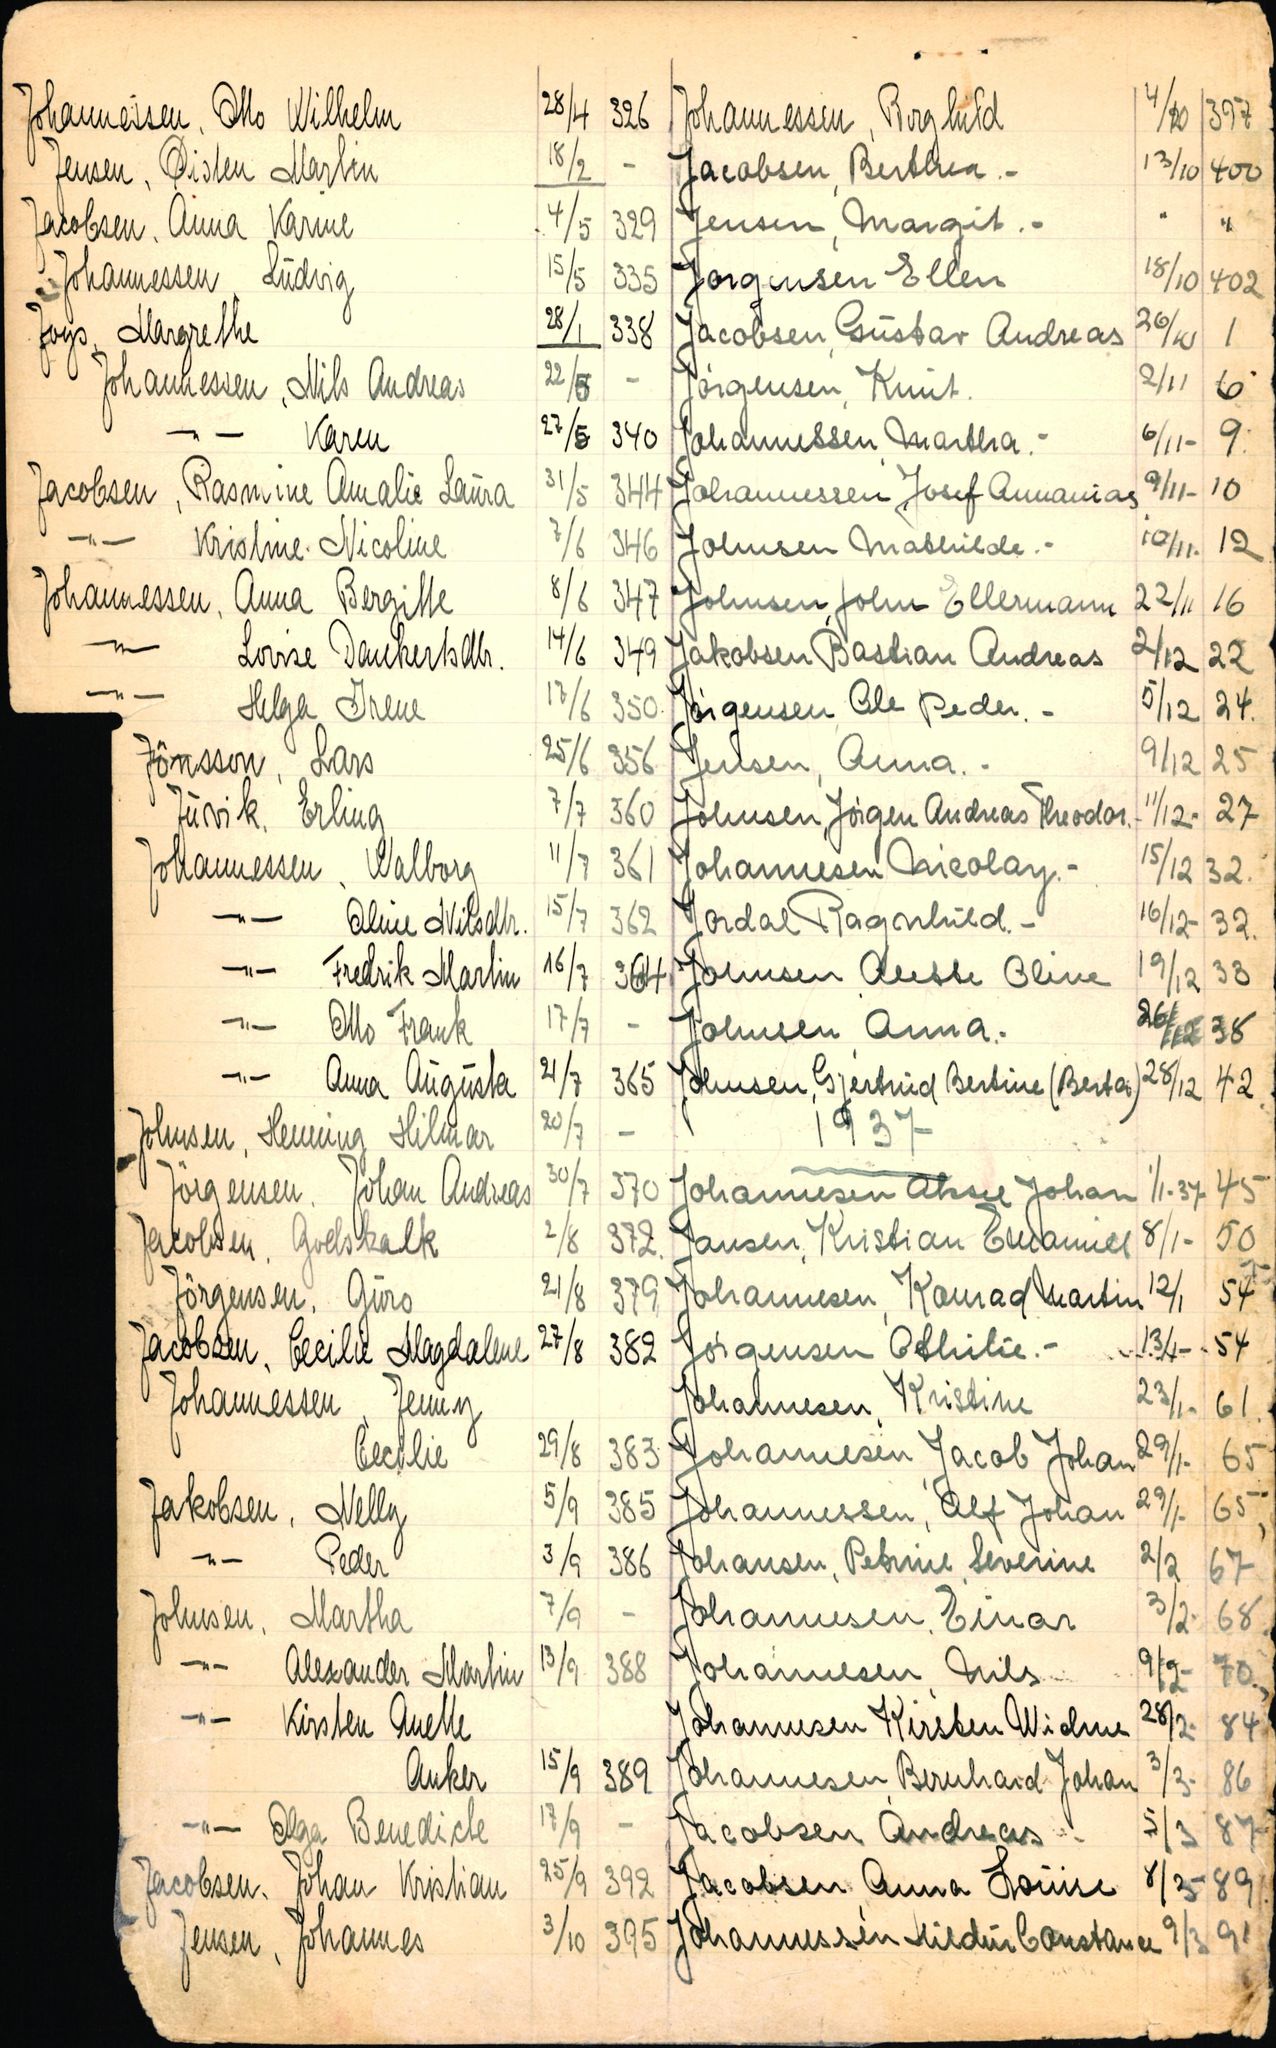 Johannessen, Otto Wilhelm 28/4 326
Jensen, Øisten Martin 18/2 -
Jacobsen, Anna Karine 4/5 329
Johannessen, Ludvig 15/5 335
Joys, Margrethe 28/1 338
Johannessen, Nils Andreas 22/5 -
-"- Karen 27/5 340
Jacobsen, Rasmine Amalie Laura 31/5 344
-"- Kristine Nicoline 7/6 346
Johannessen, Anna Bergitte 8/6 347
-"- Lovise Dankertsdtr. 14/6 349
-"- Helga Irene 17/6 350
Jönsson, Lars 25/6 356
Juvik, Erling 7/7 360
Johannessen, Valborg 11/7 361
-"- Oline Nilsdtr. 15/7 362
-"- Fredrik Martin 16/7 364
-"- Otto Frank 17/7 -
-"- Anna Augusta 21/7 365
Johnsen, Henning Hilmar 20/7 -
Jörgensen, Johan Andreas 30/7 370
Jacobsen, Godskalk 2/8 372.
Jörgensen, Guro 21/8 379
Jacobsen, Cecilie Magdalene 27/8 382
Johannessen, Jenny
Cecilie 29/8 383
Jakobsen, Nelly 5/9 385
-"- Peder 3/9 386
Johnsen, Martha 7/9 -
-"- Alexander Martin 13/9 388
-"- Kirsten Anette
Anker 15/9 389
-"- Olga Benedicte 17/9 -
Jacobsen, Johan Kristian 25/9 392
Jensen, Johannes 3/10 395
Johannessen, Borghild 4/10 397
Jacobsen, Berthea.- 13/10 400
Jensen, Margit.- " "
Jørgensen Ellen 18/10 402
Jacobsen, Gustav Andreas 26/10 1
Jørgensen, Knut. 2/11 6
Johannessen, Martha.- 6/11- 9.
Johannessen, Josef Annanias 9/11- 10
Johnsen Mathilde.- 10/11- 12
Johnsen, John Ellermann 22/11 16
Jakobsen Bastian Andreas 2/12 22
Jörgensen, Ole Peder.- 5/12 24.
Jensen, Anna.- 9/12 25
Johnsen, Jörgen Andreas Theodor.- 11/12- 27
Johannesen Nicolay.- 15/12 32.
Jordal Ragnhild.- 16/12- 32.
Johnsen Alette Oline 19/12 33
Johnsen Anna.- 26/12 38
Johnsen, Gjertrud Bertine (Berta) 28/12 42
1937
Johannesen Aksel Johan 1/1-37- 45
Jansen, Kristian Emaniel 8/1- 50
Johannesen, Konrad Martin 12/1 54
Jörgensen Othilie.- 13/1- 54
Johannesen, Kristine 23/1- 61.
Johannesen Jacob Johan 29/1- 65
Johannessen, Alf Johan 29/1- 65
Johansen, Petrine Severine 2/2 67
Johannesen, Einar 3/2- 68.
Johannesen, Nils 9/2- 70
Johannesen Kirsten Widme 28/2- 84
Johannesen, Bernhard Johan 3/3- 86
Jacobsen Andreas - 5/3 87-
Jacobsen Anna Louise 8/3- 89
Johannessen Hildur Constance 9/3 91